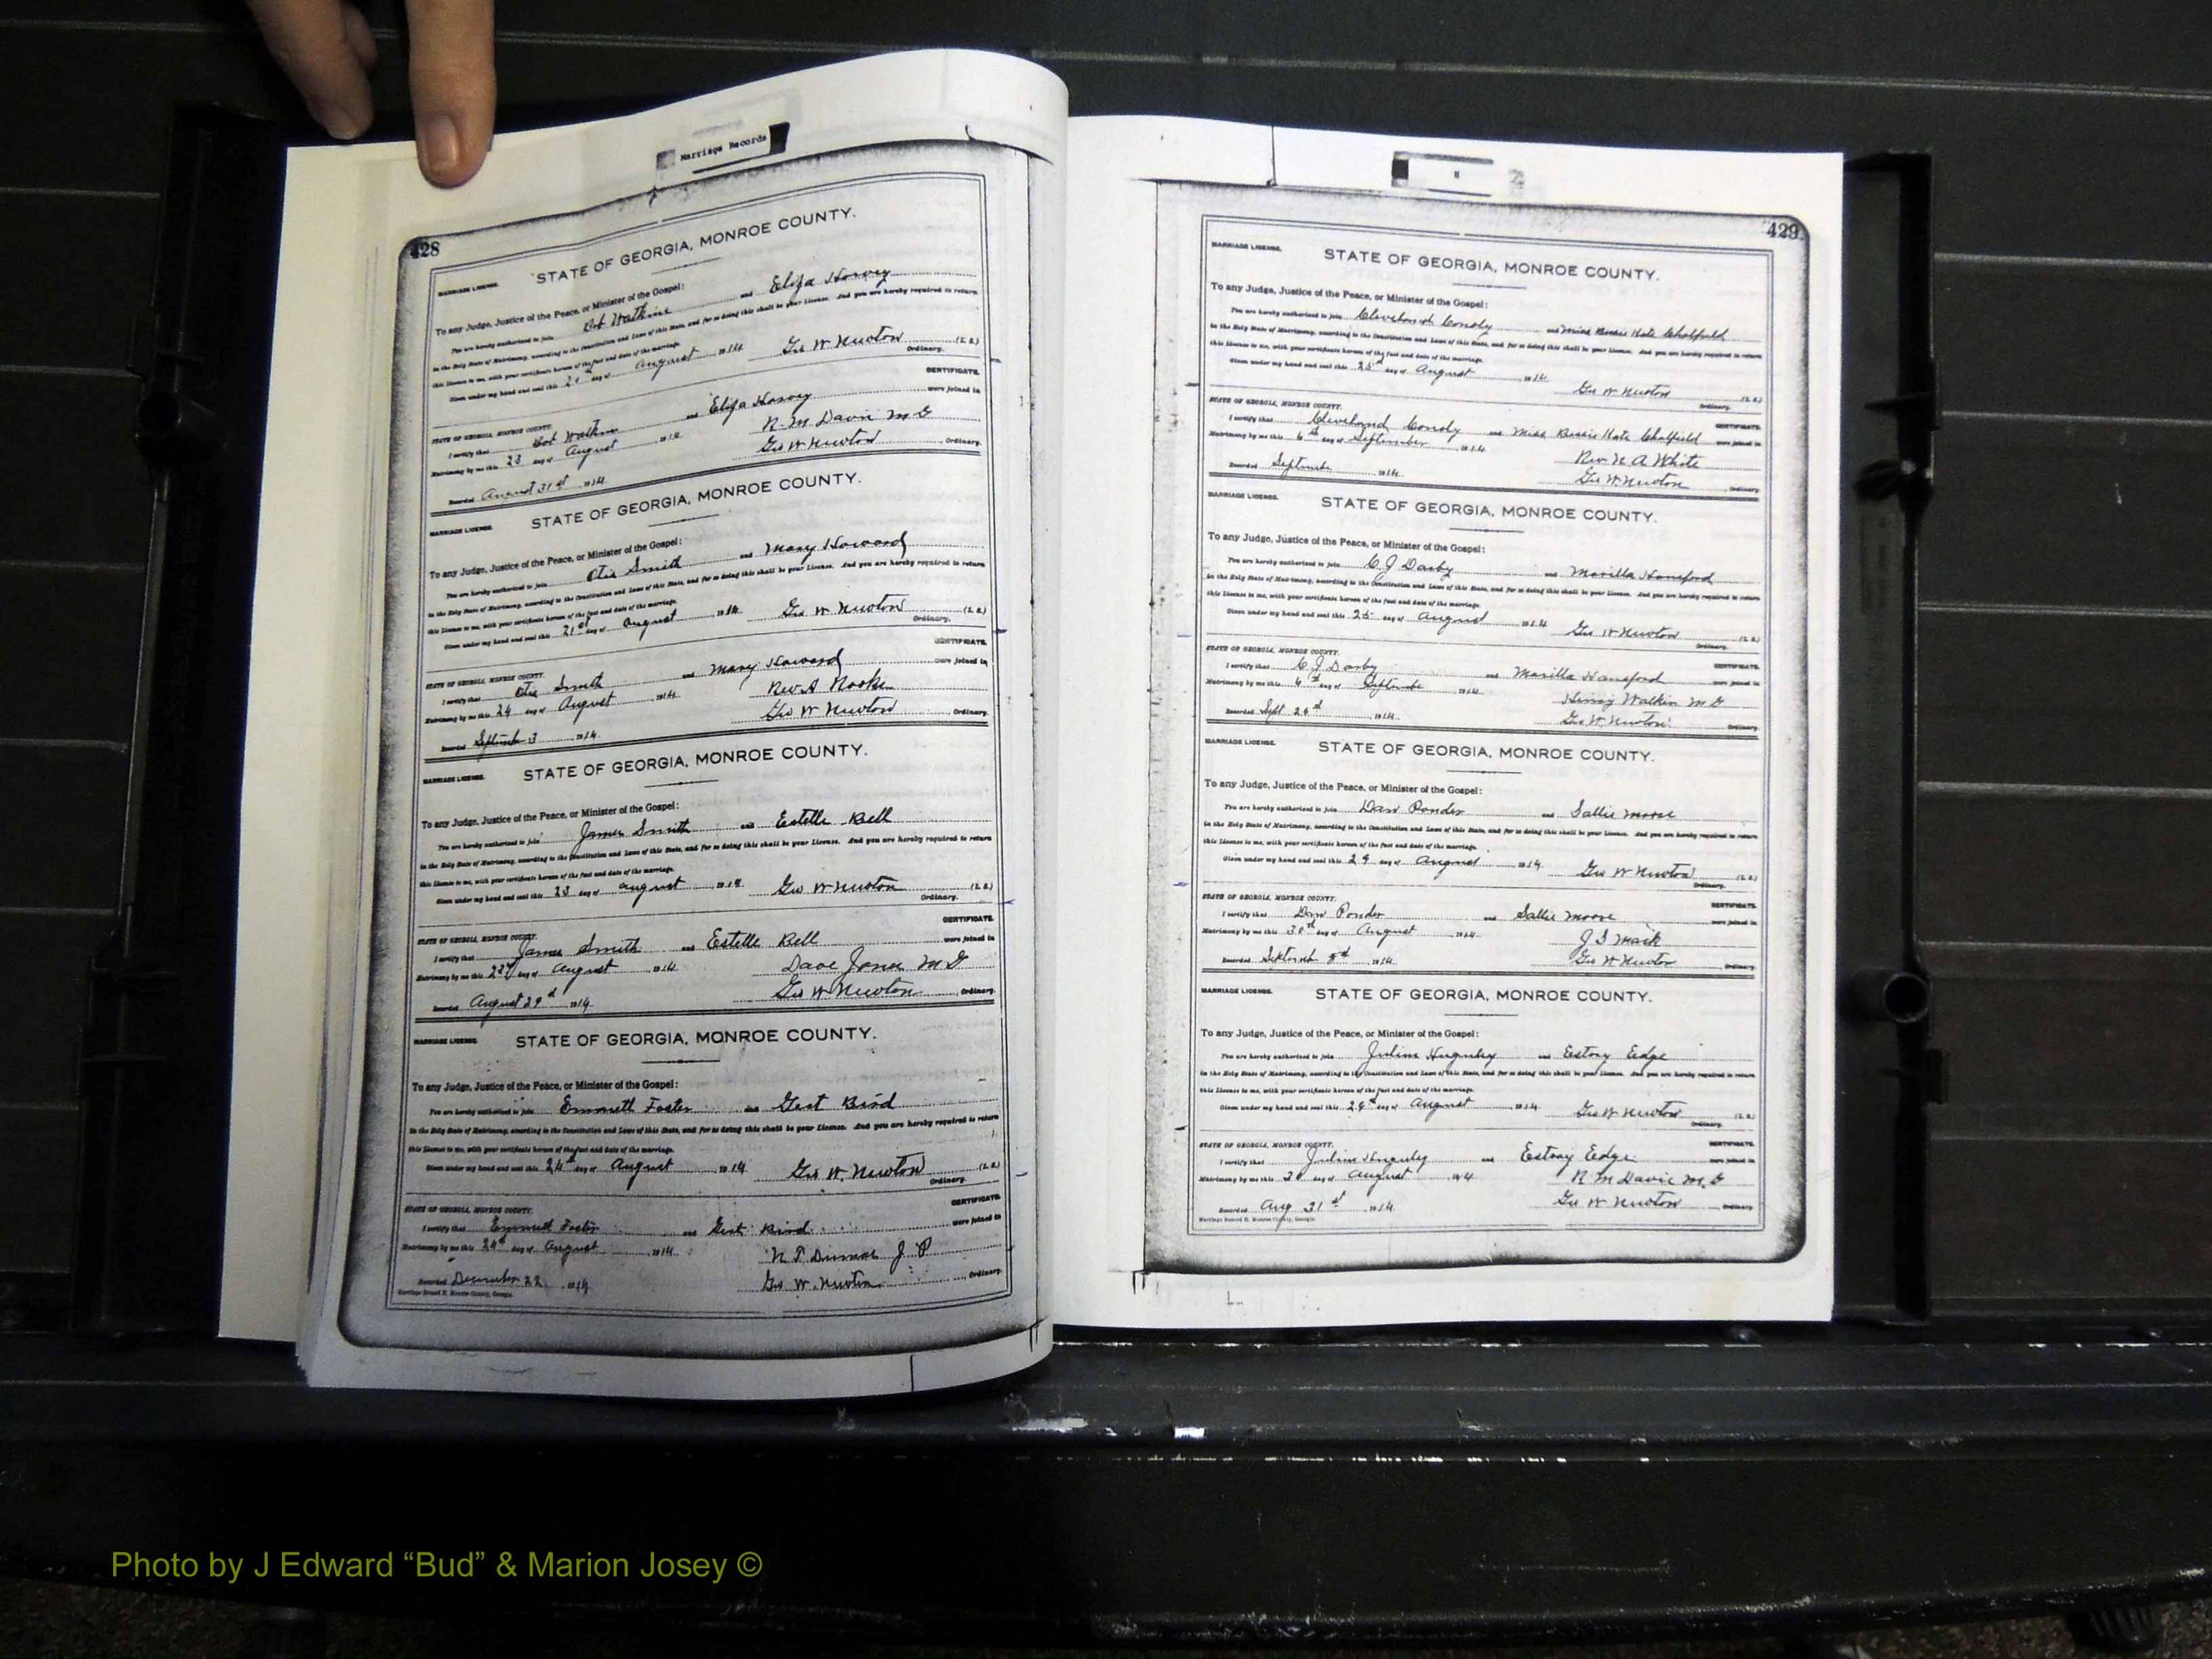 Marriage Records
428
STATE OF GEORGIA, MONROE COUNTY.
MARRIAGE LICENSE.
To any Judge, Justice of the Peace, or Minister of the Gospel:
You are hereby authorized to join Bob Watkins and Eliza Harvey
in the Holy State of Matrimony, according to the Constitution and Laws of this State, and for so doing this shall be your License. And you are hereby required to return
this License to me, with your certificate hereon of the fact and date of the marriage.
Given under my hand and seal this day of August 1914 Geo W Newton (L. S.)
Ordinary.
CERTIFICATE.
STATE OF GEORGIA, MONROE COUNTY.
I certify that Bob Watkins and Eliza Harvey were joined in
Matrimony by me this 23 day of August 1914 R. M Davis M G
Recorded August 31st 1914 Geo W Newton, Ordinary.
MARRIAGE LICENSE.
STATE OF GEORGIA, MONROE COUNTY.
To any Judge, Justice of the Peace, or Minister of the Gospel:
You are hereby authorized to join Otis Smith and Mary Howard
in the Holy State of Matrimony, according to the Constitution and Laws of this State, and for so doing this shall be your License. And you are hereby required to return
this License to me, with your certificate hereon of the fact and date of the marriage.
Given under my hand and seal this 21st day of August 1914 Geo W Newton (L. S.)
Ordinary.
CERTIFICATE.
STATE OF GEORGIA, MONROE COUNTY.
I certify that Otis Smith and Mary Howard were joined in
Matrimony by me this 24 day of August 1914 Rev A
Recorded September 3 1914 Geo W Newton, Ordinary.
MARRIAGE LICENSE.
STATE OF GEORGIA, MONROE COUNTY.
To any Judge, Justice of the Peace, or Minister of the Gospel:
You are hereby authorized to join James Smith and Estelle Bell
in the Holy State of Matrimony, according to the Constitution and Laws of this State, and for so doing this shall be your License. And you are hereby required to return
this License to me, with your certificate hereon of the fact and date of the marriage.
Given under my hand and seal this 23 day of August 1914 Geo W Newton (L. S.)
Ordinary.
CERTIFICATE.
STATE OF GEORGIA, MONROE COUNTY.
I certify that James Smith and Estelle Bell were joined in
Matrimony by me this day of August 1914 Dave Jones M G
Recorded August 29d 1914 Geo W Newton, Ordinary.
MARRIAGE LICENSE.
STATE OF GEORGIA, MONROE COUNTY.
To any Judge, Justice of the Peace, or Minister of the Gospel:
You are hereby authorized to join Emmett Foster and Gert Bird
in the Holy State of Matrimony, according to the Constitution and Laws of this State, and for so doing this shall be your License. And you are hereby required to return
this License to me, with your certificate hereon of the fact and date of the marriage.
Given under my hand and seal this 24th day of August 1914 Geo W. Newton (L. S.)
Ordinary.
CERTIFICATE.
STATE OF GEORGIA, MONROE COUNTY.
I certify that Emmett Foster and Gert Bird were joined in
Matrimony by me this 24th day of August 1914 J P
Recorded December 22 1914 Geo W. Newton, Ordinary.
Marriage Record H, Monroe County, Georgia.
429
MARRIAGE LICENSE.
STATE OF GEORGIA, MONROE COUNTY.
To any Judge, Justice of the Peace, or Minister of the Gospel:
You are hereby authorized to join Cleveland and Miss Bessie Kate Chatfield
in the Holy State of Matrimony, according to the Constitution and Laws of this State, and for so doing this shall be your License. And you are hereby required to return
this License to me, with your certificate hereon of the fact and date of the marriage.
Given under my hand and seal this 25th day of August 1914
Geo W Newton (L. S.)
Ordinary.
STATE OF GEORGIA, MONROE COUNTY. CERTIFICATE.
I certify that Cleveland and Miss Bessie Kate Chatfield were joined in
Matrimony by me this 6th day of September 1914 Rev N A White
Recorded September 1914 Geo W. Newton, Ordinary.
MARRIAGE LICENSE.
STATE OF GEORGIA, MONROE COUNTY.
To any Judge, Justice of the Peace, or Minister of the Gospel:
You are hereby authorized to join C. J Darby and Marilla Hansford
in the Holy State of Matrimony, according to the Constitution and Laws of this State, and for so doing this shall be your License. And you are hereby required to return
this License to me, with your certificate hereon of the fact and date of the marriage.
Given under my hand and seal this 25 day of August 1914 Geo W Newton (L. S.)
Ordinary.
STATE OF GEORGIA, MONROE COUNTY. CERTIFICATE.
I certify that C. J Darby and Marilla Hansford were joined in
Matrimony by me this day of September 1914 Henry Watkins M G
Recorded Sept 29d 1914 Geo W. Newton, Ordinary.
MARRIAGE LICENSE.
STATE OF GEORGIA, MONROE COUNTY.
To any Judge, Justice of the Peace, or Minister of the Gospel:
You are hereby authorized to join Dave Ponder and Sallie Moore
in the Holy State of Matrimony, according to the Constitution and Laws of this State, and for so doing this shall be your License. And you are hereby required to return
this License to me, with your certificate hereon of the fact and date of the marriage.
Given under my hand and seal this 29 day of August 1914 Geo W Newton (L. S.)
Ordinary.
STATE OF GEORGIA, MONROE COUNTY. CERTIFICATE.
I certify that Dave Ponder and Sallie Moore were joined in
Matrimony by me this 30th day of August 1914 J S
Recorded September 1914 Geo W Newton, Ordinary.
MARRIAGE LICENSE.
STATE OF GEORGIA, MONROE COUNTY.
To any Judge, Justice of the Peace, or Minister of the Gospel:
You are hereby authorized to join Julius Huguley and Estory Edge
in the Holy State of Matrimony, according to the Constitution and Laws of this State, and for so doing this shall be your License. And you are hereby required to return
this License to me, with your certificate hereon of the fact and date of the marriage.
Given under my hand and seal this 29th day of August 1914 Geo W Newton (L. S.)
Ordinary.
STATE OF GEORGIA, MONROE COUNTY. CERTIFICATE.
I certify that Julius Huguley and Estory Edge were joined in
Matrimony by me this day of August 1914 R M Davis M. G
Recorded Aug 31st 1914 Geo W Newton, Ordinary.
Marriage Record H, Monroe County, Georgia
Photo by J Edward “Bud” & Marion Josey ©